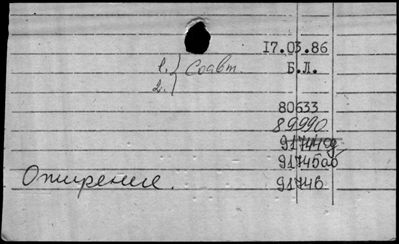 17.03.86
1. } Соавт. Б.Л.
2.
80633
89990
91744
91745аб
Ожирение. 91746